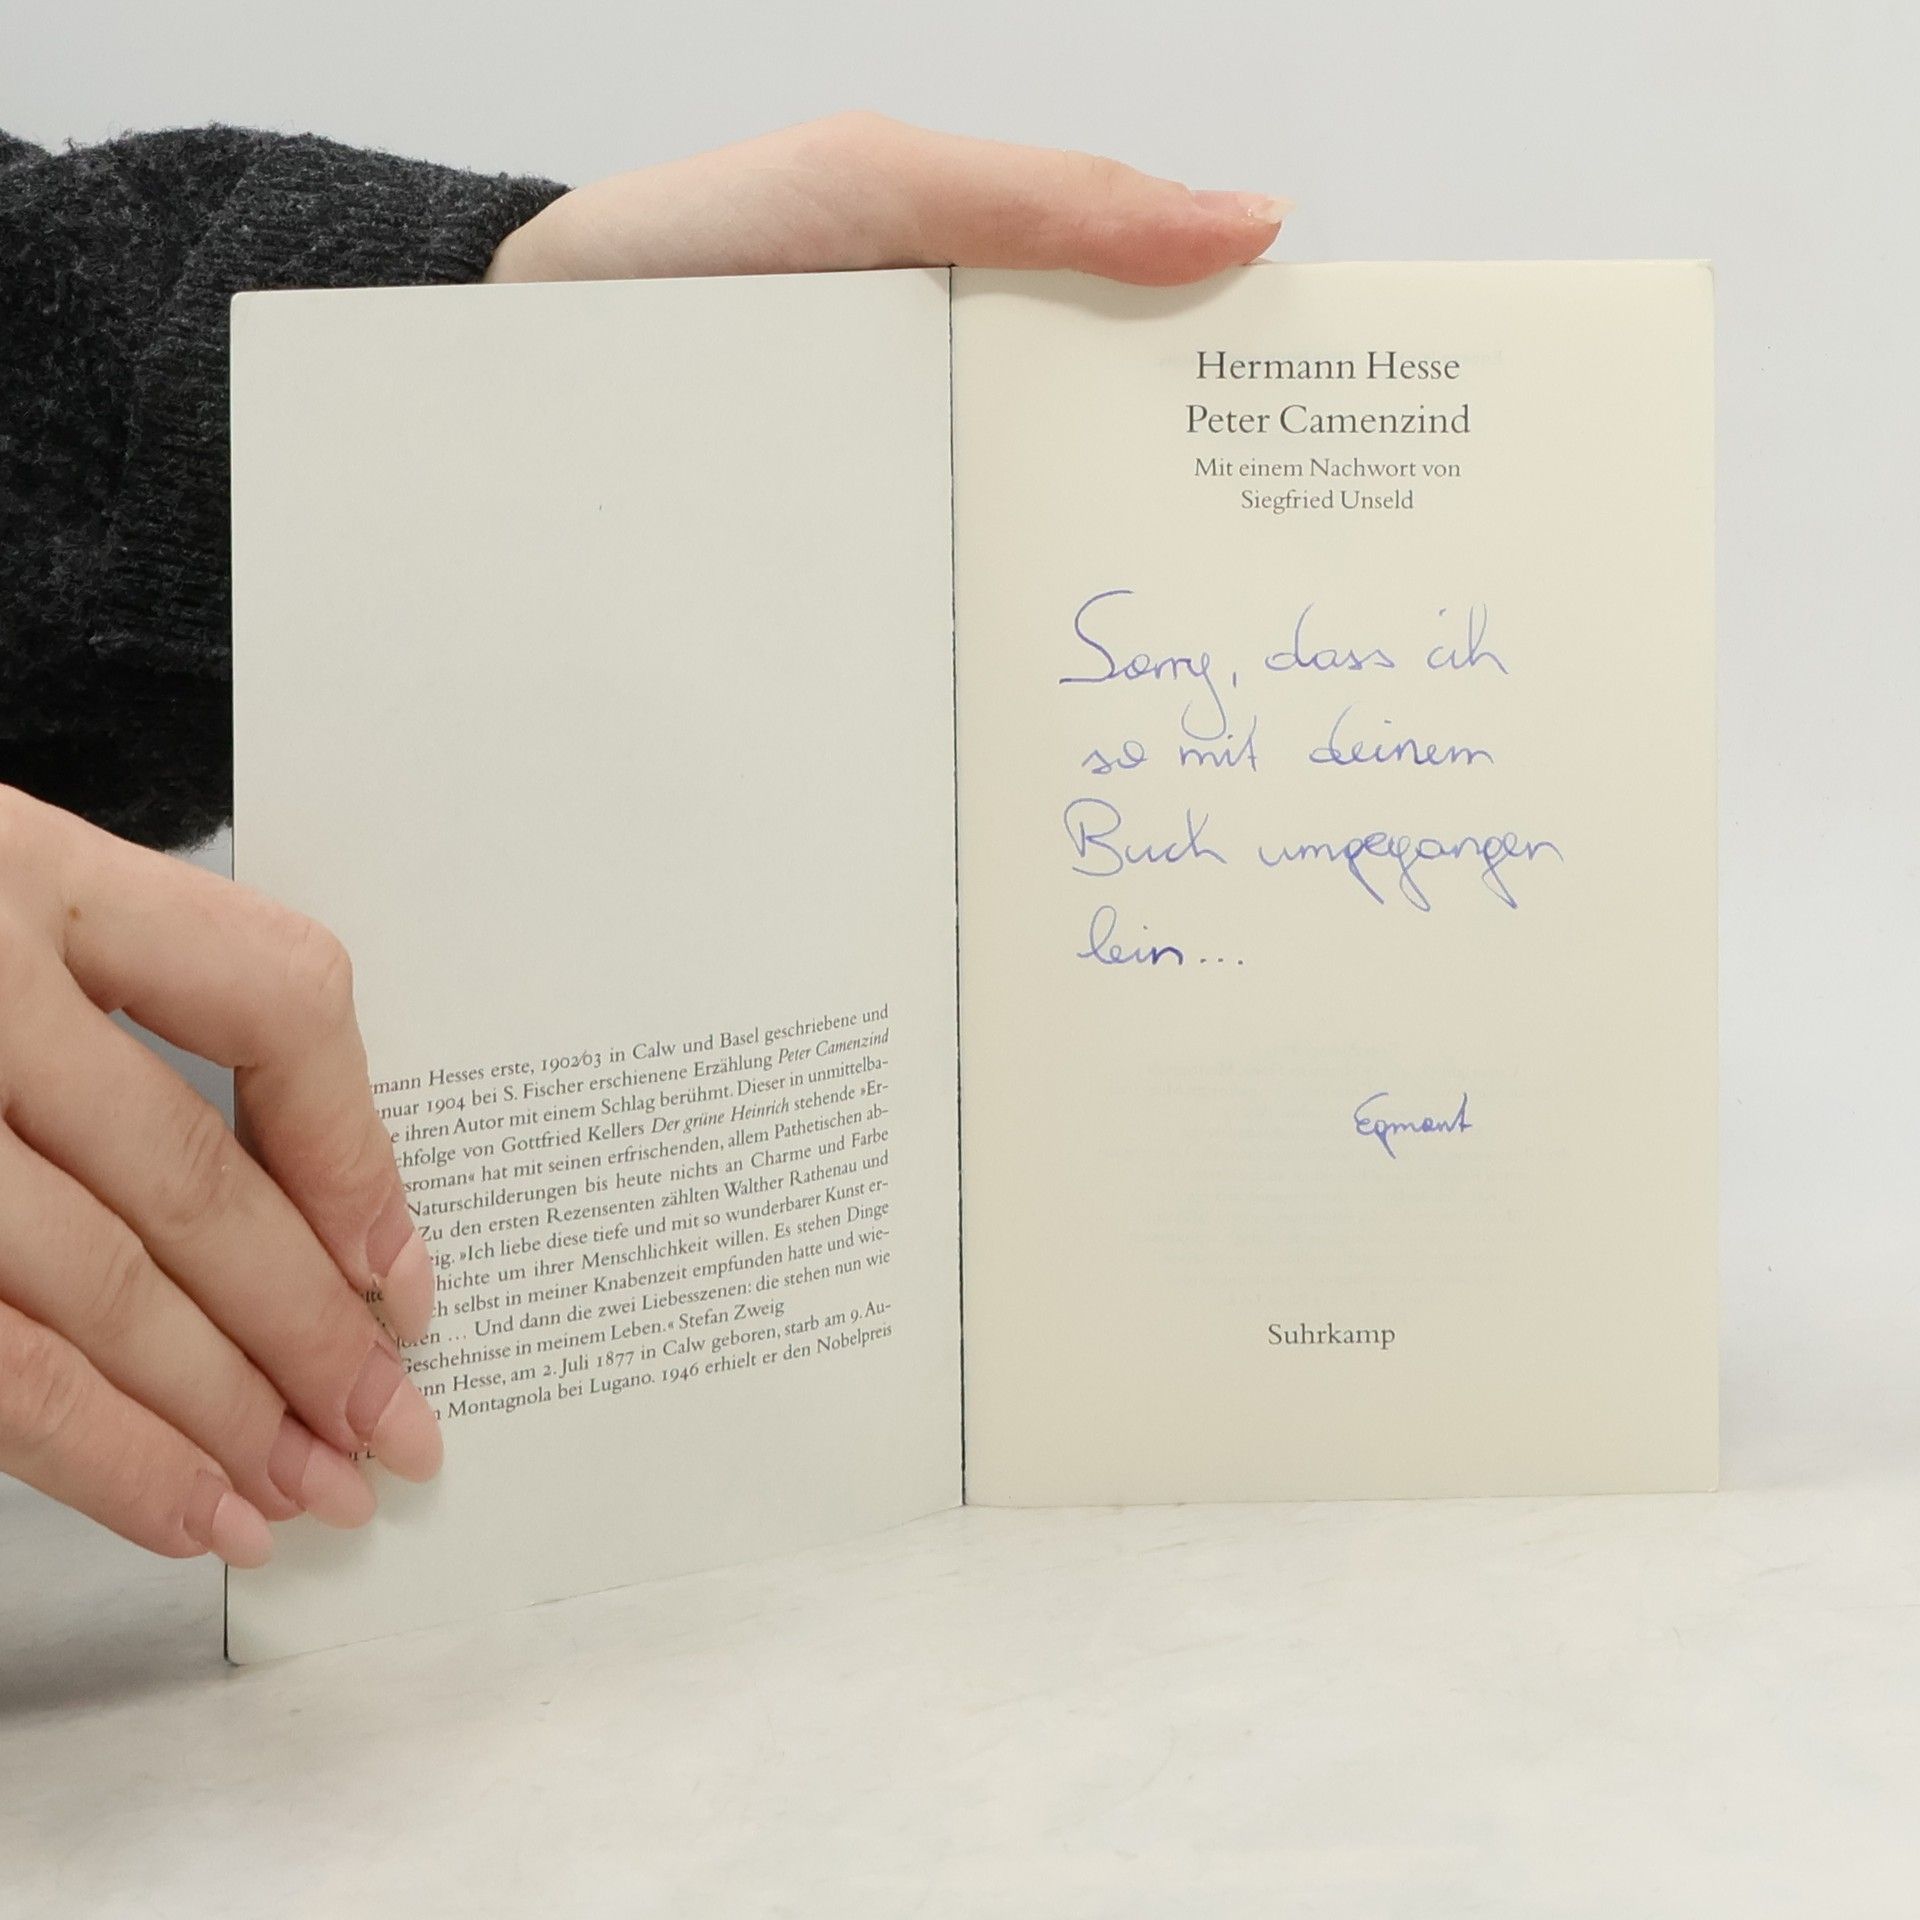 mann Hesses erste, 1902/03 in Calw und Basel geschriebene und
nuar 1904 bei S. Fischer erschienene Erzählung Peter Camenzind
e ihren Autor mit einem Schlag berühmt. Dieser in unmittelba-
chfolge von Gottfried Kellers Der grüne Heinrich stehende »Er-
sroman« hat mit seinen erfrischenden, allem Pathetischen ab-
Naturschilderungen bis heute nichts an Charme und Farbe
Zu den ersten Rezensenten zählten Walther Rathenau und
eig. »Ich liebe diese tiefe und mit so wunderbarer Kunst er-
hichte um ihrer Menschlichkeit willen. Es stehen Dinge
ch selbst in meiner Knabenzeit empfunden hatte und wie-
... Und dann die zwei Liebesszenen: die stehen nun wie
Geschehnisse in meinem Leben.« Stefan Zweig
nn Hesse, am 2. Juli 1877 in Calw geboren, starb am 9. Au-
n Montagnola bei Lugano. 1946 erhielt er den Nobelpreis
Hermann Hesse
Peter Camenzind
Mit einem Nachwort von
Siegfried Unseld
Sorry, dass ich
so mit deinem
Buch umgegangen
bin...
Egmont
Suhrkamp